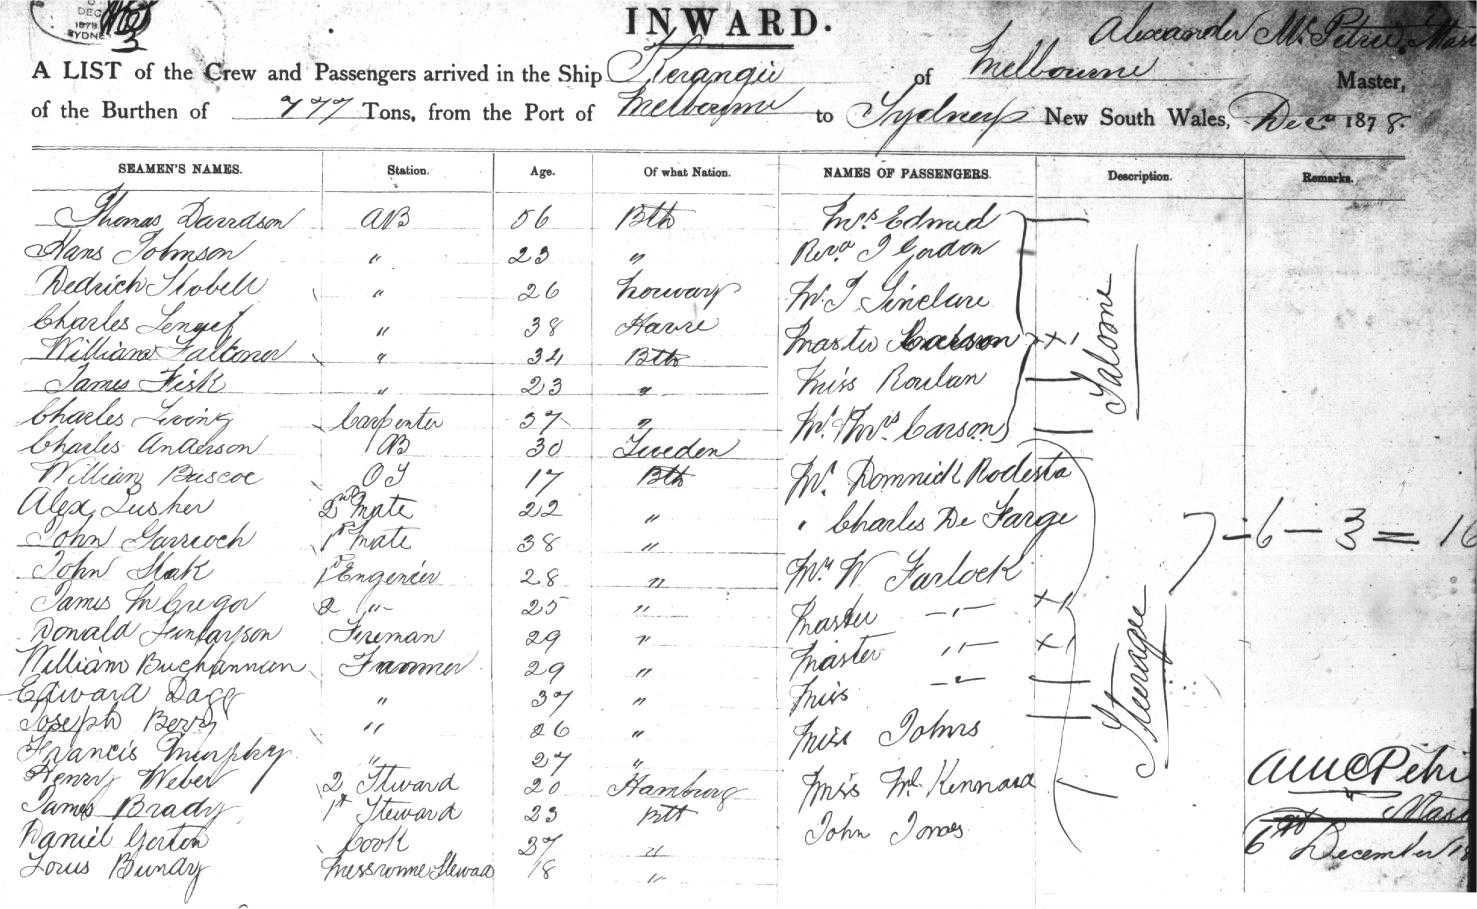 DEC
1878
SYDNEY
3
INWARD.
Alexander Mc Petrie
A LIST of the Crew and Passengers arrived in the Ship Kerangie of Melbourne Master,
of the Burthen of 777 Tons, from the Port of Melbourne to Sydney New South Wales, Decr 1878.
SEAMEN'S NAMES. Station. Age. Of what Nation. NAMES OF PASSENGERS. Description. Remarks.
Thomas Davidson AB 56 Bth Mrs Edmud
Hans Johnson " 23 " Revd J Gordon
Dedrich Stobell " 26 Norway Mr J Sinclare
Charles " 38 Havre Master Carson
William Falconer " 34 Bth Miss Roulan
James Fisk " 23 " Mr & Mrs Carson
Saloone
Charles Carpenter 37 "
Charles Anderson AB 30 Sweden
William Buscoe OS 17 Bth Mr Domnick Rodesta
Alex Lusher 2nd Mate 22 " " Charles De Farge
7 - 6 - 3 = 16
John Garrioch 1st Mate 38 " Mr W Farlock
John Slak 1st Engenier 28 " Master -"-
James McGregor 2 -"- 25 " Master -"-
Donald Finlayson Fireman 29 " Miss -"-
William Buchannan 29 "
Steragee
Edward Dagg " 37 " Miss Johns
Joseph Berry " 26 "
Francis Murphey " 27 " Miss Mc Kennard
Henry Weber 2 Steward 20 Hamburg John Jones
James Brady 1st Steward 23 Bth
Daniel Gorton Cook 37 "
Louis Bundy Messroome Steward 18 "
A McC Petri
6th December 18